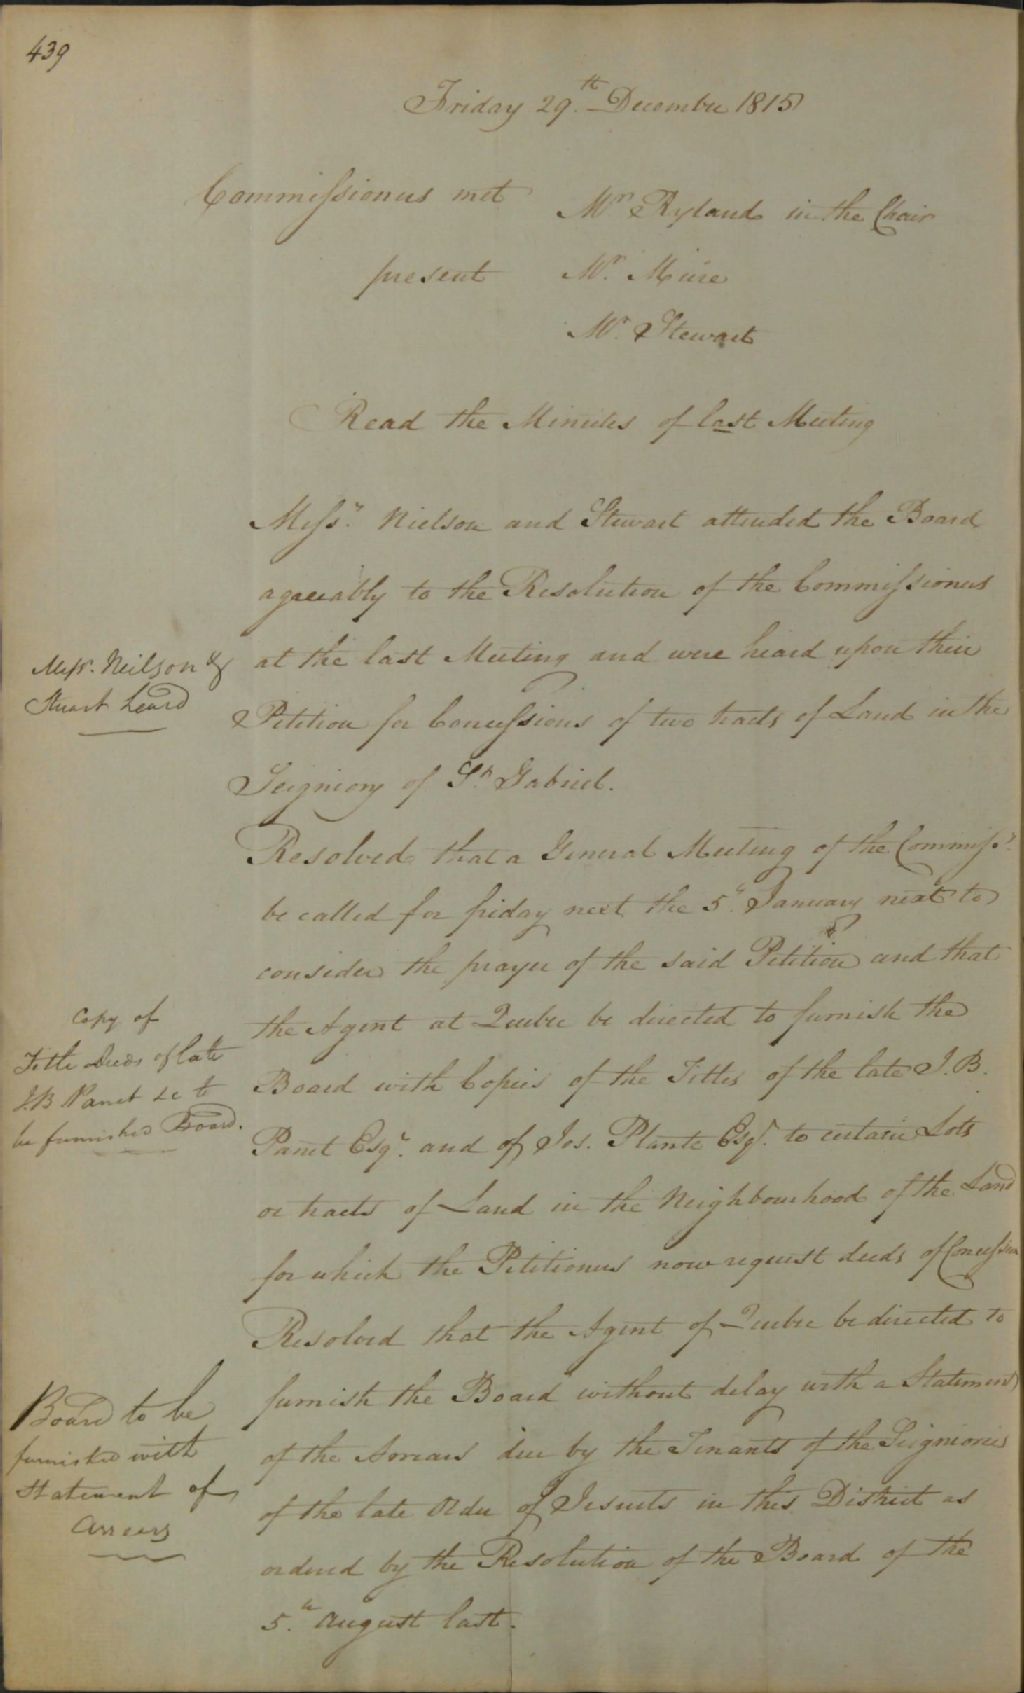 439
Friday 29.th December 1815
Commissioners met Mr Ryland in the Chair
present Mr. Mure
Mr. Stewart
Read the Minutes of last Meeting
Messrs. Nielson and Stewart attended the Board
agreeably to the Resolution of the Commissioners
Messrs. Neilson &
Stuart heard
at the last Meeting and were heard upon their
Petition for Concessions of two tracts of Land in the
Seigniory of St. Gabriel.
Resolved that a General Meeting of the Commissrs.
be called for friday next the 5th. January next to
consider the prayer of the said Petition and that
Copy of
Title Deeds of late
J.B Panet &c to
be furnished Board.
the Agent at Quebec be directed to furnish the
Board with Copies of the Titles of the late J.B.
Panet Esqr. and of Jos. Planté Esqr. to certain Lots
or tracts of Land in the Neighbourhood of the Land
for which the Petitioners now request deeds of Concession
Resolved that the Agent of Quebec be directed to
Board to be
furnished with
Statement of
arrears
furnish the Board without delay with a Statement
of the Arrears due by the Tenants of the Seigniories
of the late Order of Jesuits in this District as
ordered by the Resolution of the Board of the
5.th August last.